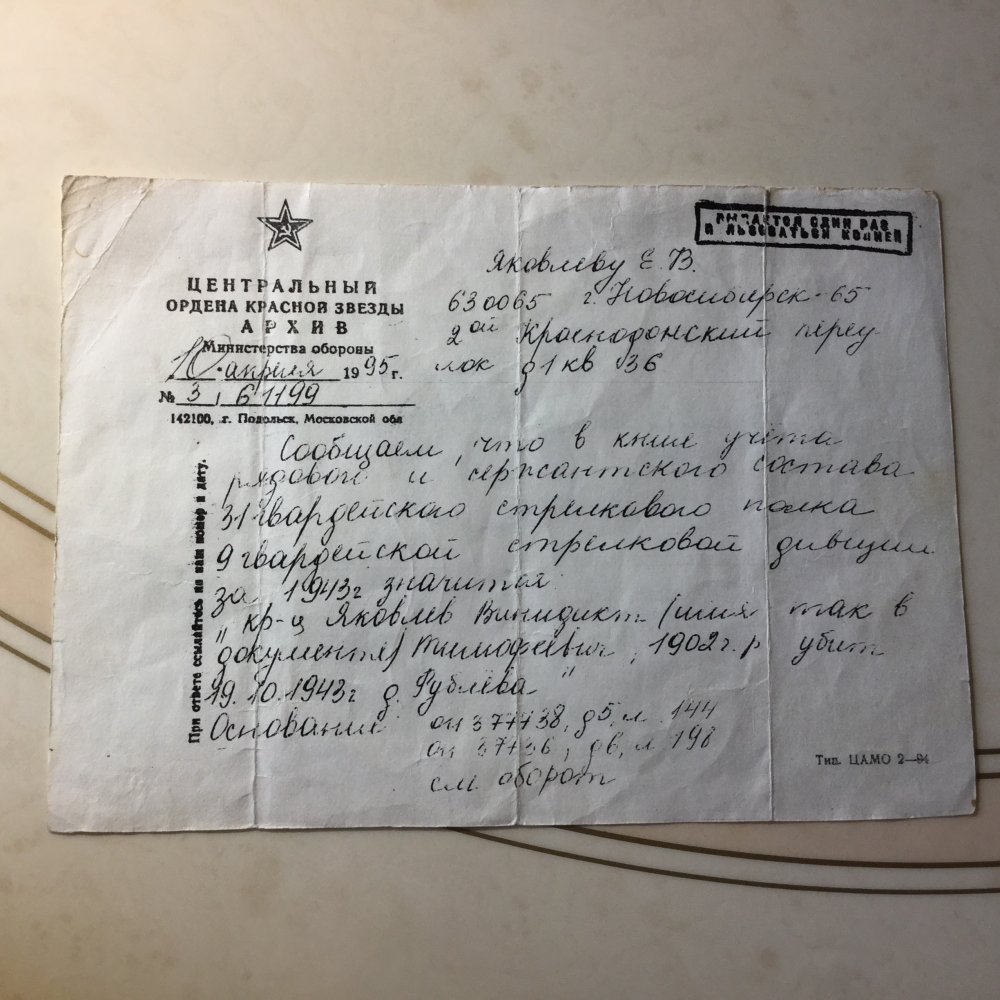 ВЫДАЕТСЯ ОДИН РАЗ
ПОЛЬЗОВАТЬСЯ КОПИЕЙ
ЦЕНТРАЛЬНЫЙ
ОРДЕНА КРАСНОЙ ЗВЕЗДЫ
АРХИВ
Министерства обороны
10. апреля 1995 г.
№ 3, 61199
142100, г. Подольск, Московской обл
Яковлеву Е. В.
630065 г. Новосибирск-65
2ой Краснодонский переу
лок д1 кв 36
При ответе ссылайтесь на наш номер и дату.
Сообщаем, что в книге учёта
рядового и сержантского состава
31 гвардейского стрелкового полка
9 гвардейской стрелковой дивизии
за 1943г значится:
„ кр-ц Яковлев Винидикт (имя так в
документе) Тимофеевич, 1902г.р убит
19.10.1943г д. Рублёва"
Основание оп 377738, д5, л. 144
оп 37736, д6, л 198
см. оборот
Тип. ЦАМО 2—94